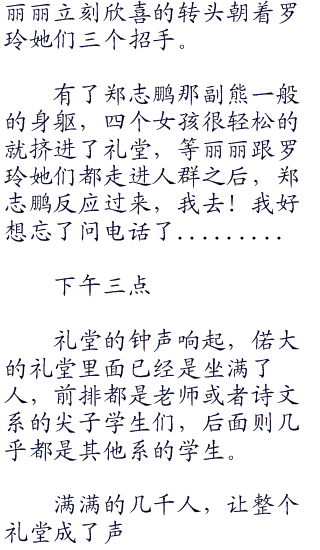 丽丽立刻欣喜的转头朝着罗
玲她们三个招手。
有了郑志鹏那副熊一般
的身躯，四个女孩很轻松的
就挤进了礼堂，等丽丽跟罗
玲她们都走进人群之后，郑
志鹏反应过来，我去！我好
想忘了问电话了.........
下午三点
礼堂的钟声响起，偌大
的礼堂里面已经是坐满了
人，前排都是老师或者诗文
系的尖子学生们，后面则几
乎都是其他系的学生。
满满的几千人，让整个
礼堂成了声